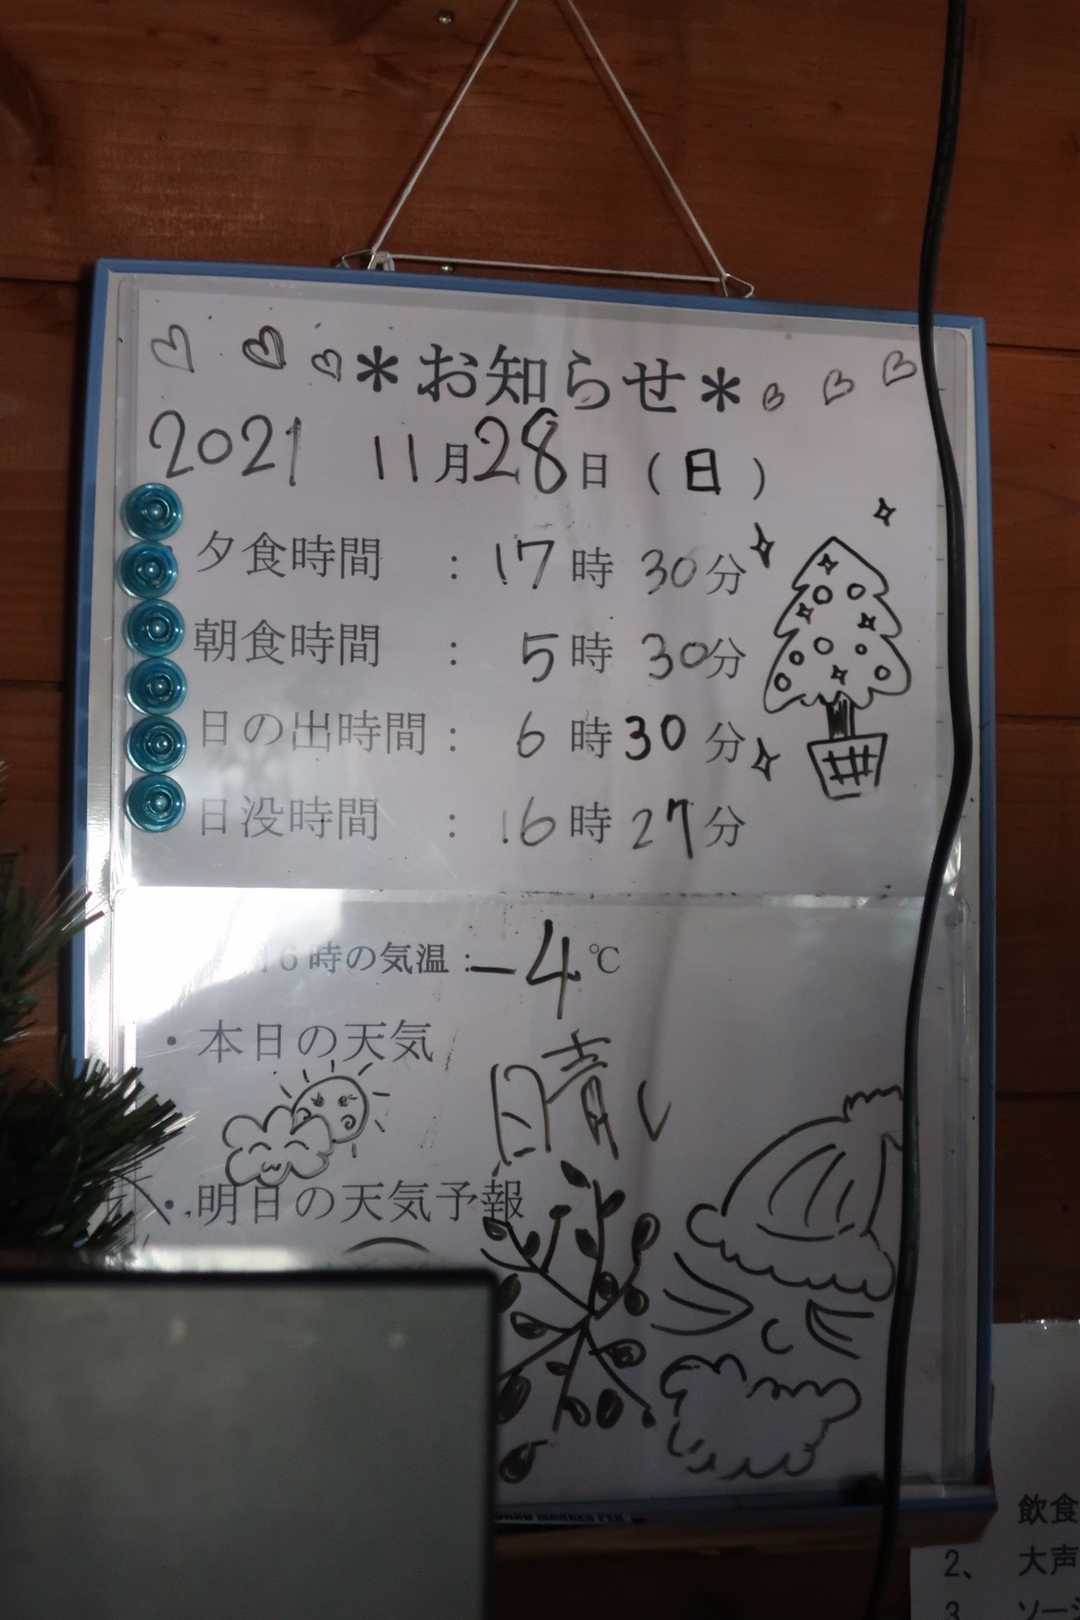 *お知らせ*
2021 11月28日（日）
夕食時間 ： 17時 30分
朝食時間 ： 5時 30分
日の出時間： 6時30分
日没時間 ： 16時 27分
6時の気温：-4℃
・本日の天気
晴れ
・明日の天気予報
飲食
2、 大声
3